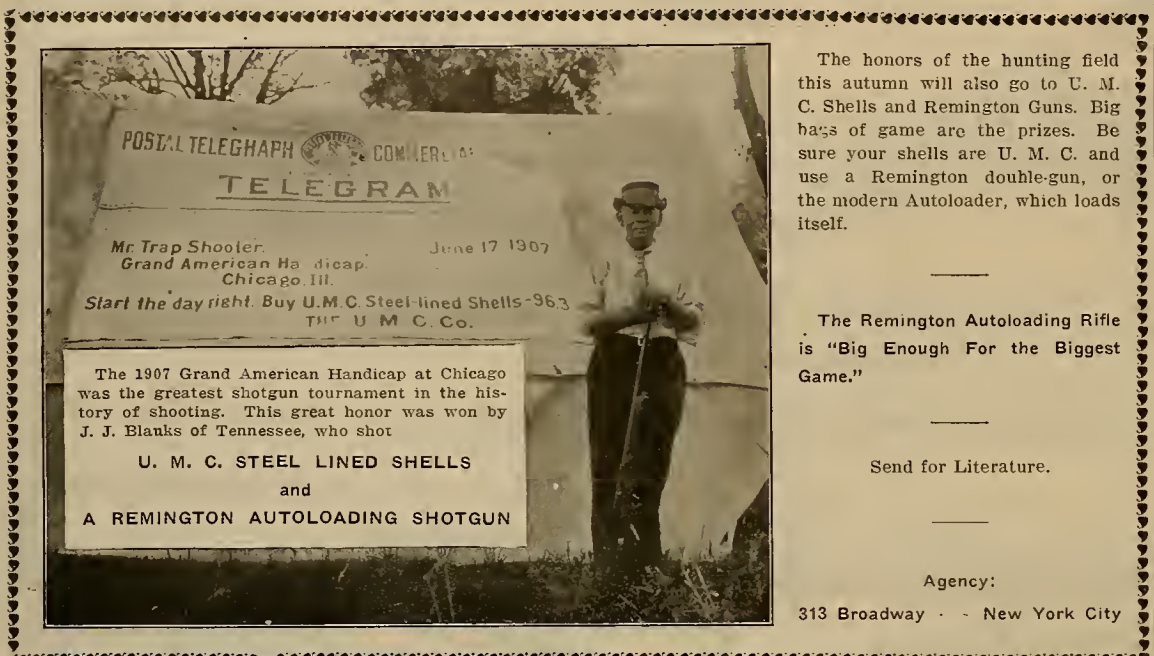 POSTAL TELEGRAPH COMMERCIAL
TELEGRAM
Mr. Trap Shooter. June 17 1907
Grand American Ha dicap.
Chicago. Ill.
Start the day right. Buy U.M.C. Steel-lined Shells-96.3
THE U M C. Co.
The 1907 Grand American Handicap at Chicago
was the greatest shotgun tournament in the his-
tory of shooting. This great honor was won by
J. J. Blanks of Tennessee, who shot
U. M. C. STEEL LINED SHELLS
and
A REMINGTON AUTOLOADING SHOTGUN
The honors of the hunting field
this autumn will also go to U. M.
C. Shells and Remington Guns. Big
bags of game are the prizes. Be
sure your shells are U. M. C. and
use a Remington double-gun, or
the modern Autoloader, which loads
itself.
The Remington Autoloading Rifle
is “Big Enough For the Biggest
Game.”
Send for Literature.
Agency:
313 Broadway - - New York City